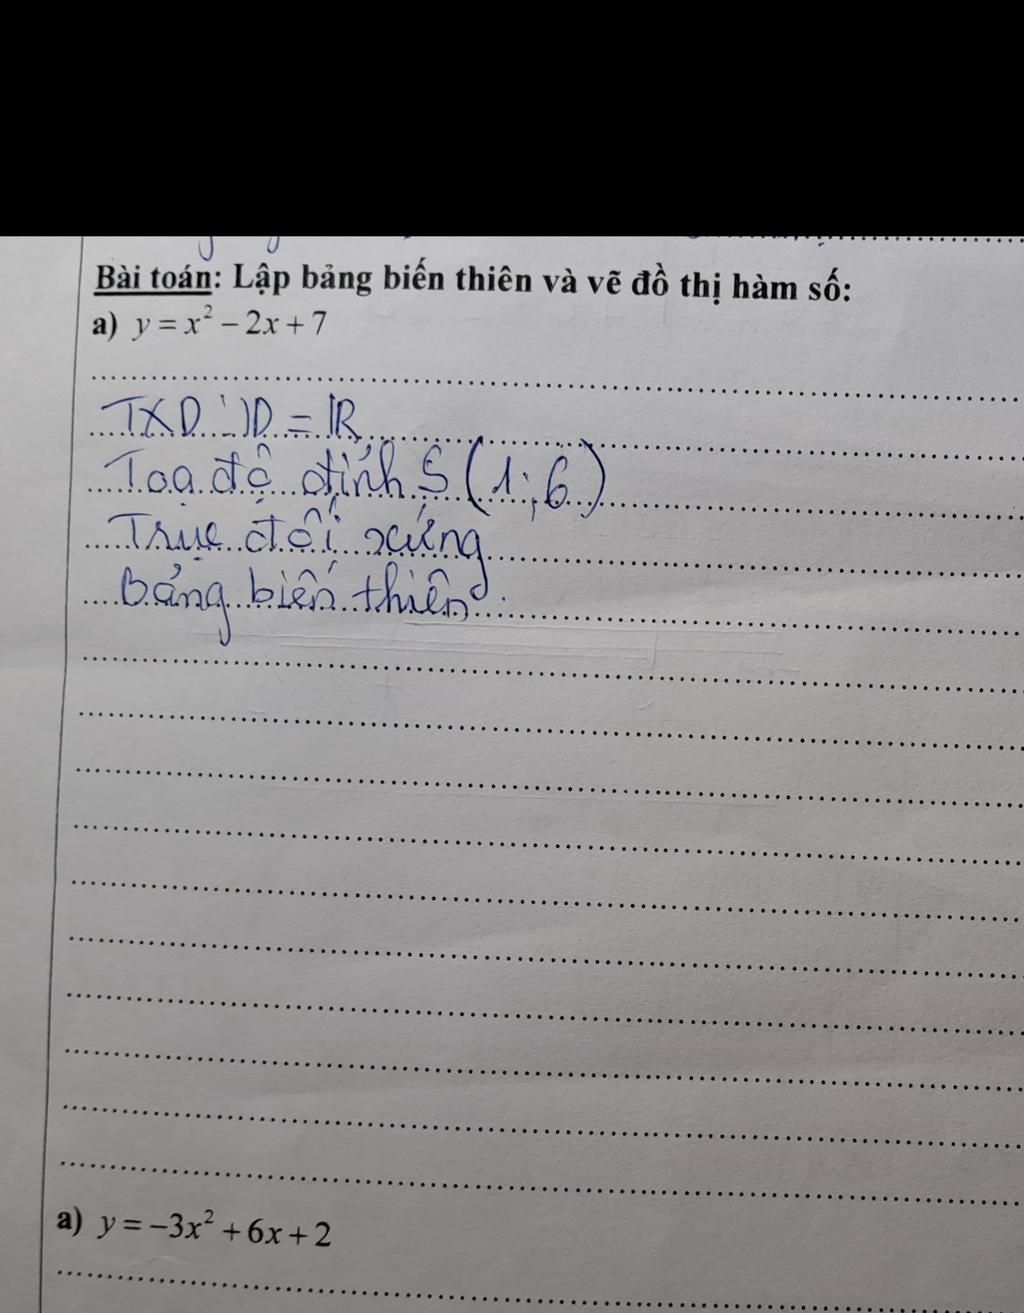 Bài toán: Lập bảng biến thiên và vẽ đồ thị hàm số:
a) y = x² − 2x + 7
TXD: D = ℝ
Toạ độ đỉnh S (1; 6)
Trục đối xứng
Bảng biến thiên:
a) y = −3x² + 6x + 2